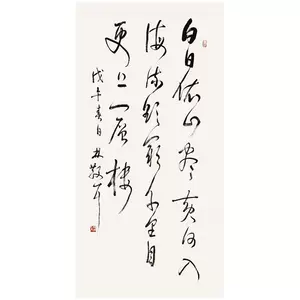 白日依山尽黄河入
海流欲穷千里目
更上一层楼
戊午春日 林散耳